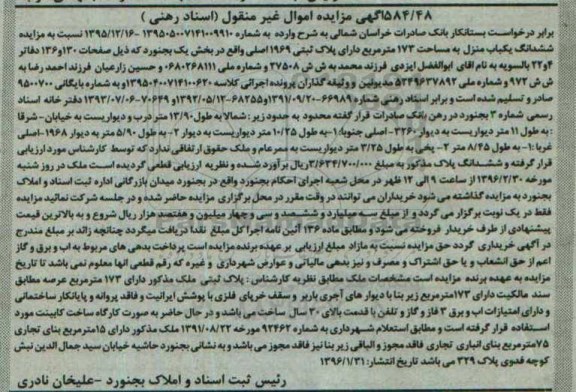 ۵۸۴/۴۸آگهی مزایده اموال غیر منقول (اسناد رهنی)
برابر درخواست بستانکار بانک صادرات خراسان شمالی به شرح وارده به شماره ۱۳۹۵۰۵۰۰۷۱۴۱۰۰۹۹۱۰ -۱۳۹۵/۱۲/۱۶ نسبت به مزایده
ششدانگ یکباب منزل به مساحت ۱۷۳ مترمربع دارای پلاک ثبتی ۱۹۶۹ اصلی واقع در بخش یک بجنورد که ذیل صفحات ۱۳۰و۱۳۶ دفاتر
۴و۲۲ بالسویه به نام آقای ابوالفضل ایزدی فرزند محمد به ش ش ۳۷۵۰۸ و شماره ملی ۰۶۸۰۲۶۸۱۱۱ و حسین زارعیان فرزند احمد رضا به
ش ش ۹۷۲ و شماره ملی ۵۳۴۹۶۳۷۸۹۲ مدیونین و وثیقه گذاران پرونده اجرائی کلاسه ۱۳۹۵۰۴۰۰۷۱۴۱۰۰۶۲۰و به شماره بایگانی ۹۵۰۰۷۰۰
صادر و تسلیم شده است و برابر اسناد رهنی شماره ۶۶۹۸۹-۱۳۹۱/۰۹/۲۰و۶۸۲۵۵-۱۳۹۲/۰۵/۱۳و۷۰۶۴۹-۱۳۹۳/۰۷/۰۶ دفتر خانه اسناد
رسمی شماره ۳ بجنورد در رهن بانک صادرات قرار گفته محدود به حدود زیر : شمالا به طول ۱۳/۹۰ متر درب و دیواریست به خیابان - شرقا
:به طول ۱۱ متر دیواریست به دیوار ۳۲۶۰- اصلی جنوبا: ۱-به طول ۱۰/۲۵ متر دیواریست به دیوار ۲- به طول ۵/۹۰ متر به دیوار ۱۹۶۸-اصلی
غربا: ۱- به طول ۸/۴۵ متر ۲- یخی به طول ۳/۲۵ متر دیواریست به ممرعام و ملک حقوق ارتفاقی ندارد که توسط کارشناس مورد ارزیابی
قرار گرفته و ششدانگ پلاک مذکور به مبلغ ۳/۶۳۴/۷۰۰/۰۰۰ریال برآورد شده و نظریه ارزیابی قطعی گردیده است ملک در روز شنبه
مورخه ۱۳۹۶/۲/۳۰ از ساعت ۹ الی ۱۲ ظهر در محل شعبه اجرای احکام بجنورد واقع در بجنورد میدان بازرگانی اداره ثبت اسناد و املاک
بجنورد به مزایده گذاشته می شود خریداران می توانند در وقت مقرر در محل برگزاری مزایده حاضر شده و در جلسه شرکت نمائید مزایده
فقط در یک نوبت برگزار می گردد و از مبلغ سه میلیارد و ششصد و سی و چهار میلیون و هفتصد هزار ریال شروع و به بالاترین قیمت
پیشنهادی از طرف خریدار فروخته می شود و مطابق ماده ۱۳۶ آئین نامه اجرا کل مبلغ نقدا دریافت میگردد چنانچه زائد بر مبلغ مندرج
در آگهی خریداری گردد حق مزایده نسبت به مازاد مبلغ ارزیابی بر عهده برنده مزایده است پرداخت بدهی های مربوط به اب و برق و گاز
اعم از حق انشعاب و یا حق اشتراک و مصرف و نیز بدهی مالیاتی و عوارض شهرداری و غیره که رقم قطعی آنها معلوم نمی باشد تا تاریخ
مزایده به عهده برنده مزایده است مشخصات ملک مطابق نظریه کارشناس : پلاک ثبتی ملک مذکور دارای ۱۷۳ مترمربع عرصه مطابق
سند مالکیت دارای ۱۷۳مترمربع زیر بنا با دیوار های آجری باربر و سقف خرپای فلزی با پوشش ایرانیت و فاقد پروانه و پایانکار ساختمانی
و دارای امتیازات اب و برق ۳ فاز و گاز و تلفن با قدمت بالای ۳۰ سال ساخت می باشد و در حال حاضر به صورت کارگاه ساخت کابینت مورد
استفاده قرار گرفته است و مطابق استعلام شهرداری به شماره ۹۲۴۶۲ مورخه ۱۳۹۱/۰۸/۲۲ ملک مذکور دارای ۱۵مترمربع بنای تجاری
۷۵مترمربع بنای انباری تجاری فاقد مجوز و الباقی زیر بنا نیز فاقد مجوز می باشد و به نشانی بجنورد حاشیه خیابان سید جمال الدین نبش
کوچه فدوی پلاک ۳۲۹ می باشد تاریخ انتشار: ۱۳۹۶/۱/۳۱
رئیس ثبت اسناد و املاک بجنورد -علیخان نادری